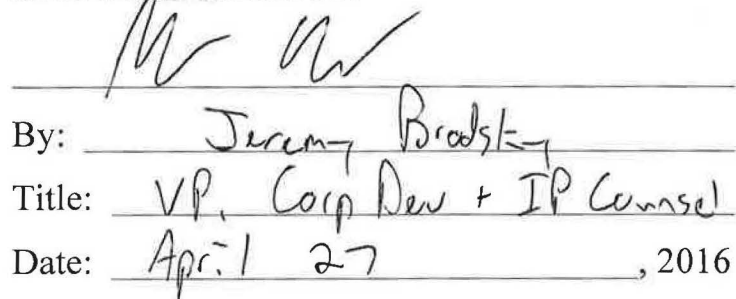 By: Jeremy Brodsky
Title: VP, Corp Dev + IP Counsel
Date: April 27, 2016